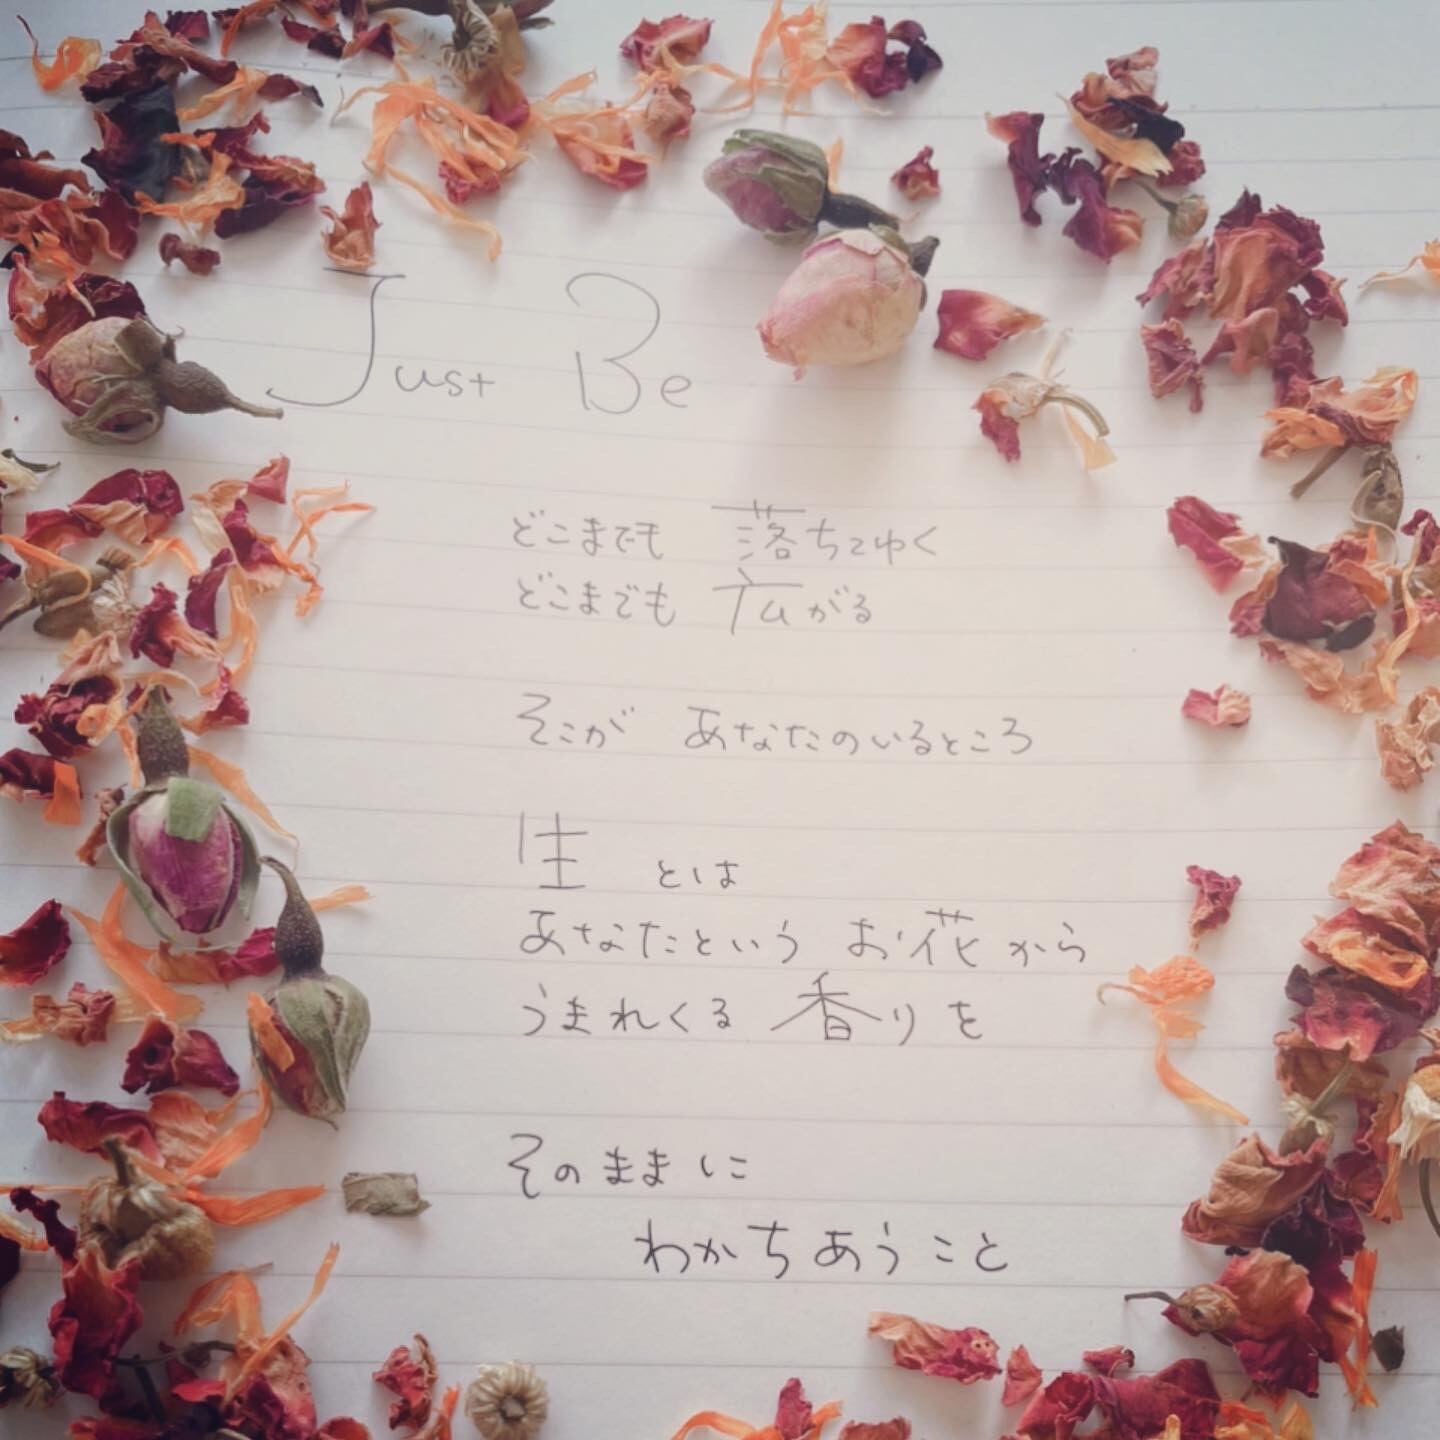 Just Be
どこまでも 落ちてゆく
どこまでも 広がる
そこが あなたのいるところ
生 とは
あなたという お花から
うまれくる 香りを
そのままに
わかちあうこと